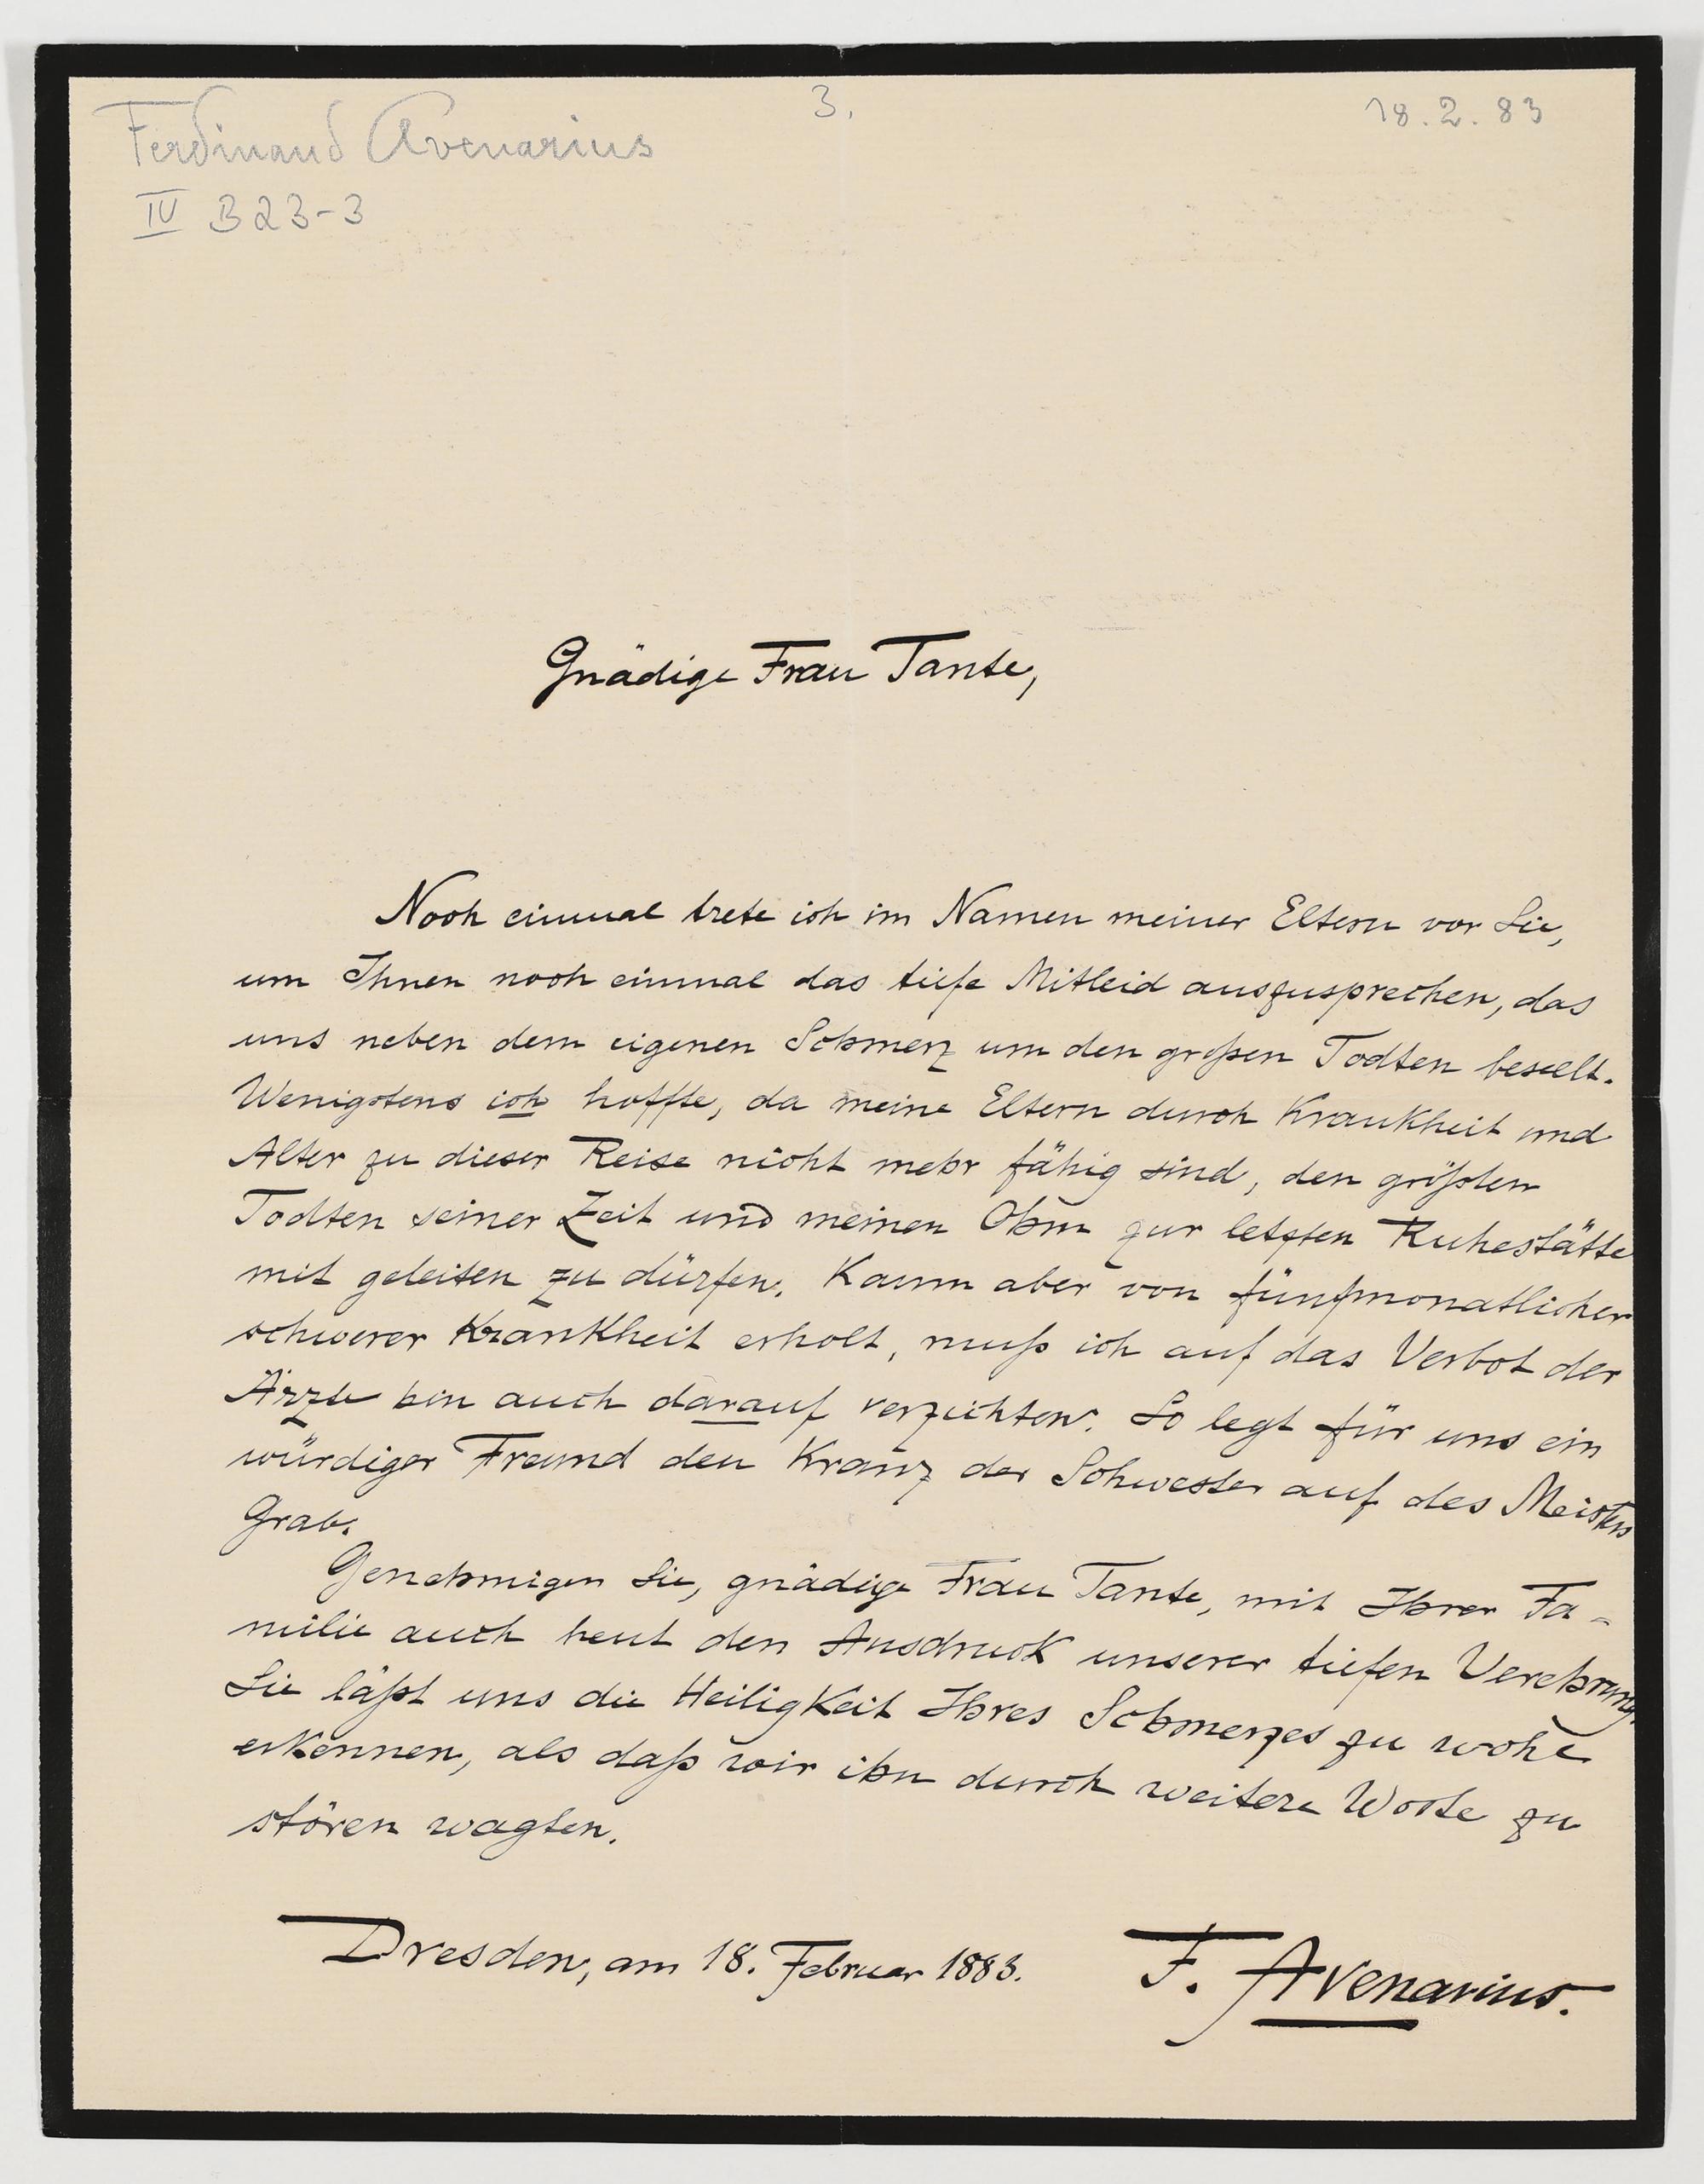 Ferdinand Avenarius
3.
18.2.83
IV B23-3
Gnädige Frau Tante,
Noch einmal trete ich im Namen meiner Eltern vor Sie,
um Ihnen noch einmal das tiefe Mitleid auszusprechen, das
uns neben dem eigenen Schmerz um den großen Todten beseelt.
Wenigstens ich hoffte, da meine Eltern durch Krankheit und
Alter zu dieser Reise nicht mehr fähig sind, den größten
Todten seiner Zeit und meinen Ohm zur letzten Ruhestätte
mit geleiten zu dürfen. Kaum aber von fünfmonatlicher
schwerer Krankheit erholt, muß ich auf das Verbot der
Ärzte hin auch darauf verzichten. So legt für uns ein
würdiger Freund den Kranz der Schwester auf des Meisters
Grab.
Genehmigen Sie, gnädige Frau Tante, mit Ihrer Fa-
milie auch heut den Ausdruck unserer tiefen Verehrung.
Sie läßt uns die Heiligkeit Ihres Schmerzes zu wohl
erkennen, als daß wir ihn durch weitere Worte zu
stören wagten.
Dresden, am 18. Februar 1883.
F. Avenarius.